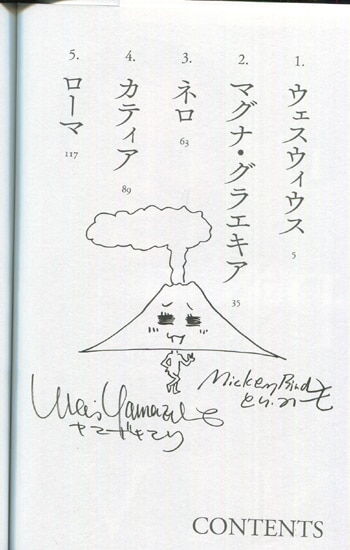 1.
ウェスウィウス
5
2.
マグナ・グラエキア
35
3.
ネロ
63
4.
カティア
89
5.
ローマ
117
Mari Yamazaki
ヤマザキマリ
Mickey Bird
とり・みき
CONTENTS